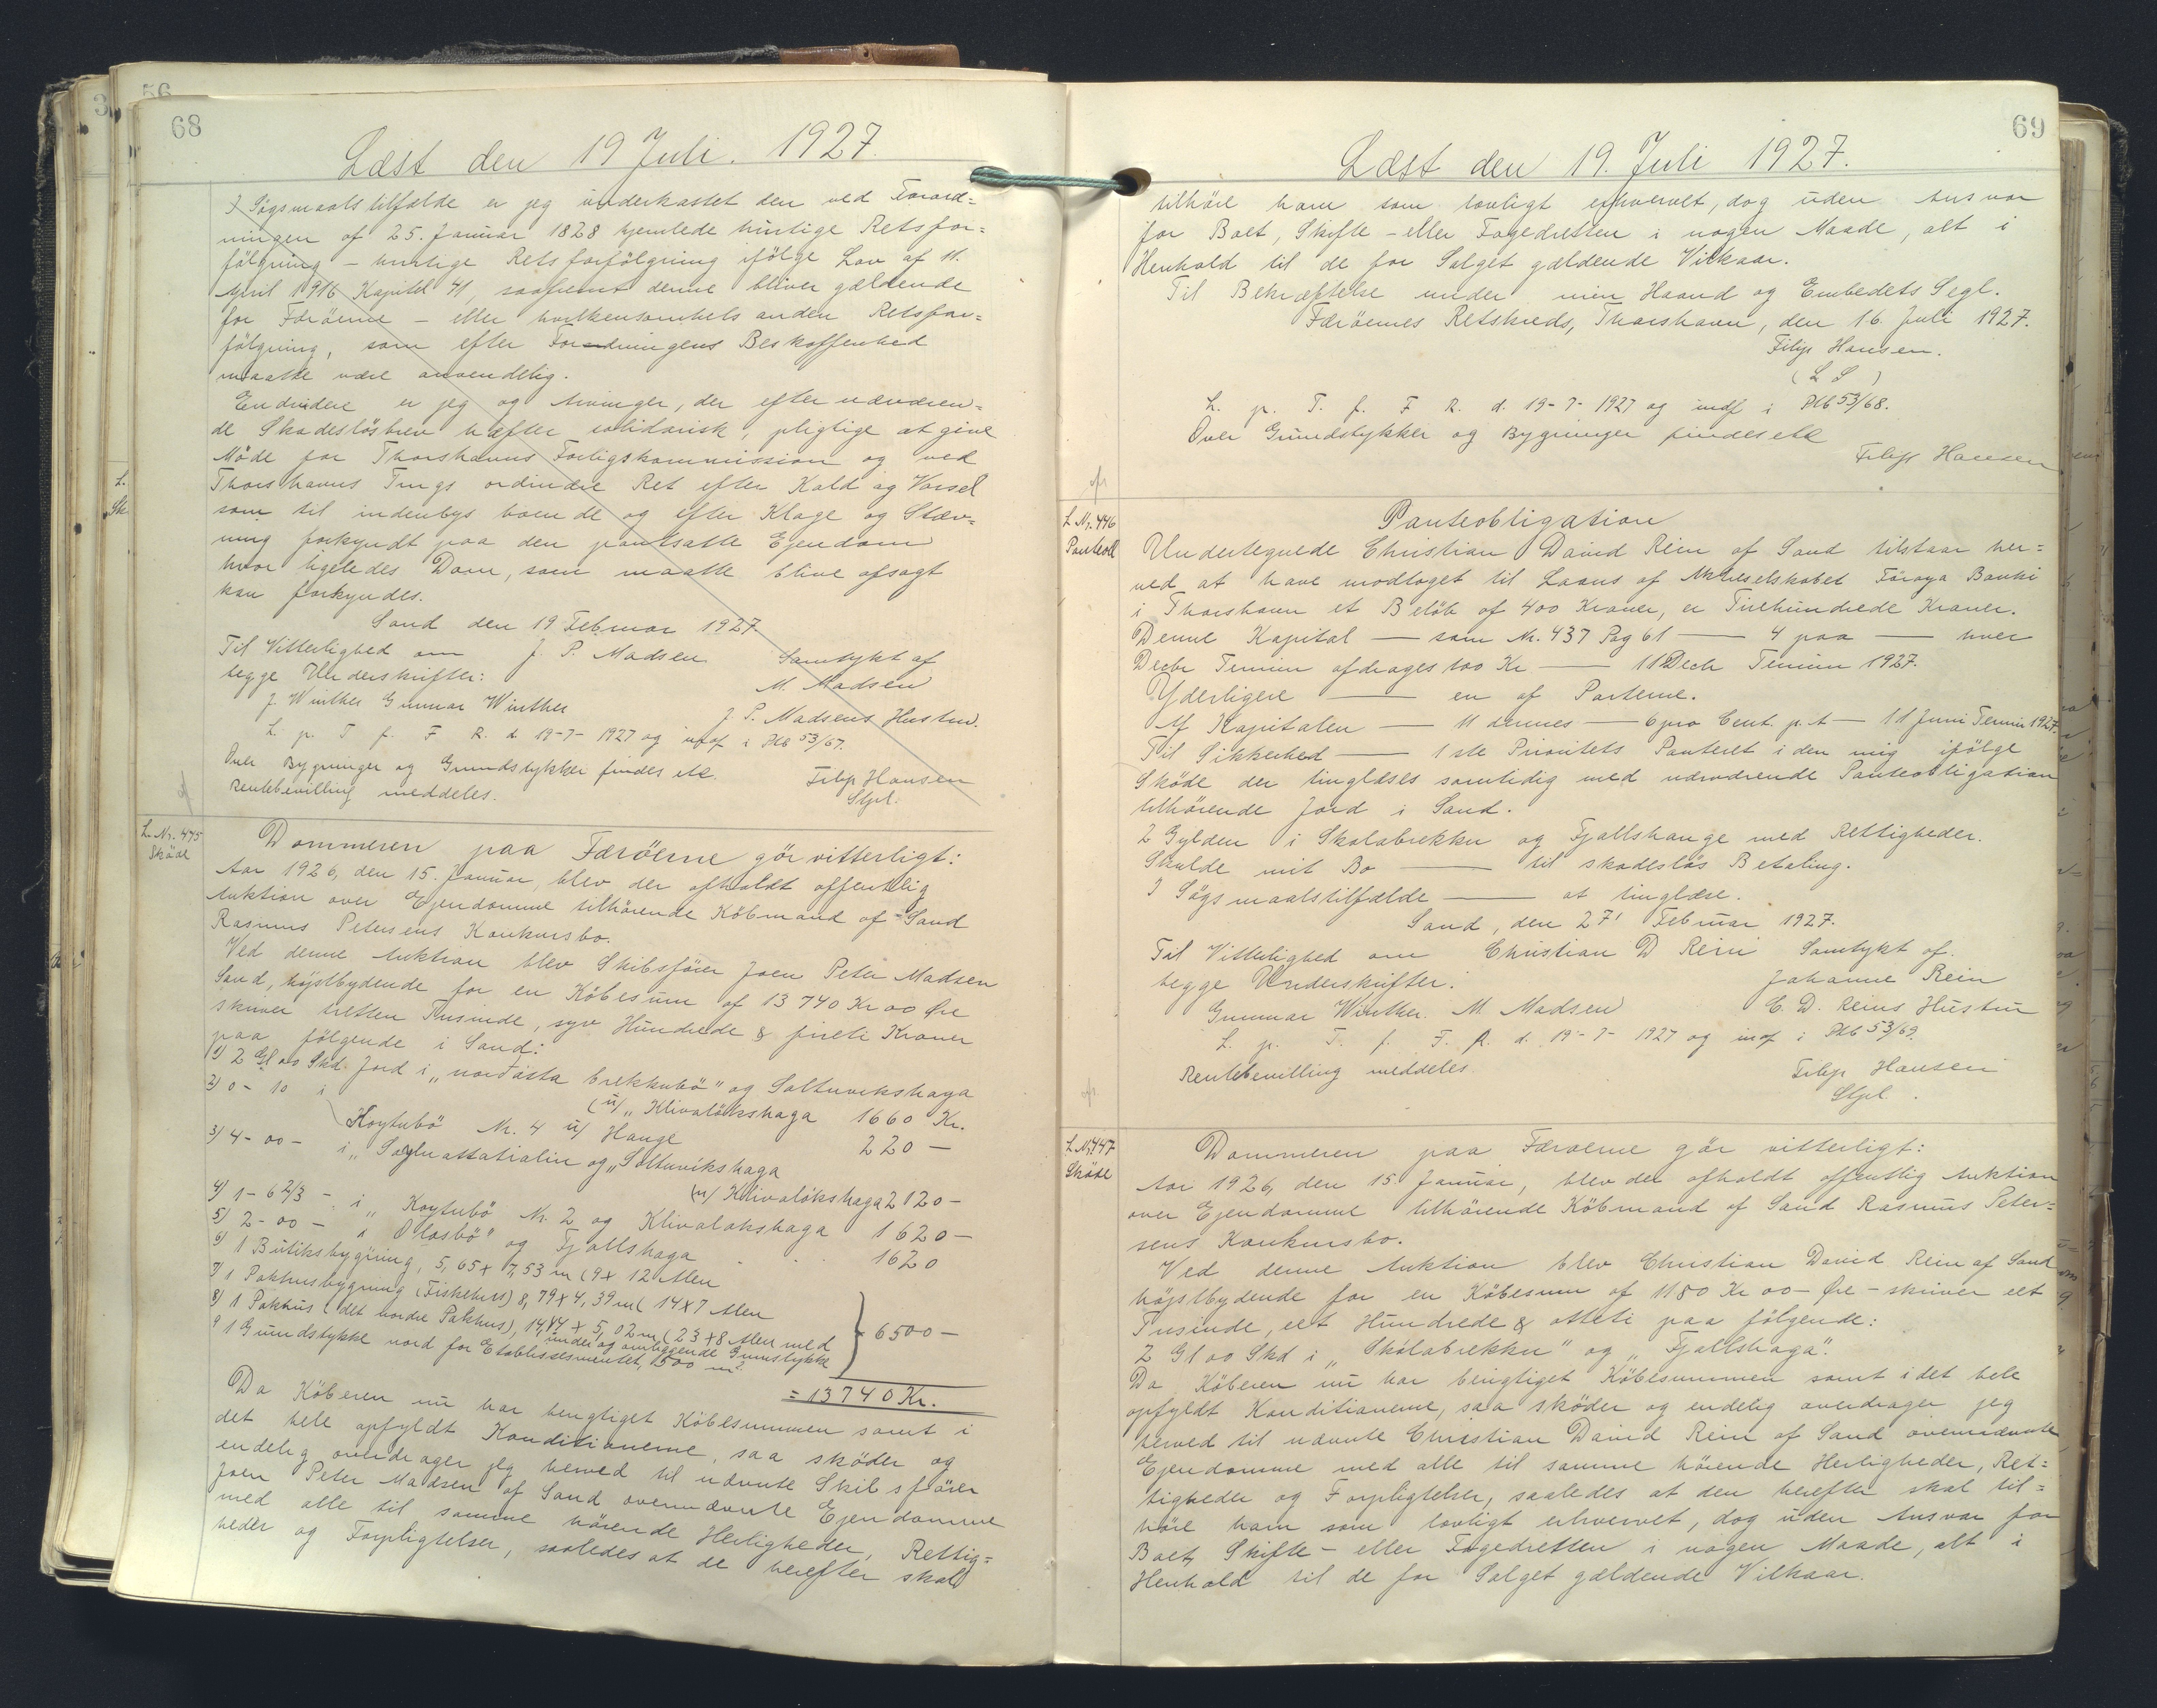 68
Læst den 19 Juli. 1927.
I Sögsmaalstilfælde er jeg underkastet den ved Forord=
ningen af 25. Januar 1828 hjemlede hurtige Retsfor=
fölgning – hurtige Retsforfölgning ifölge Lov af 11.
April 1916 Kapitel 41, saafremt denne bliver gældende
for Færöerne – eller hvilkensomhelst anden Retsfor=
fölgning, som efter Fordringens Beskaffenhed
maatte være anvendelig.
Endvidere er jeg og Arvinger, der efter nærværen=
de Skadeslösbrev hæfter solidarisk, pligtige at give
Möde for Thorshavns Forligskommission og ved
Thorshavns Tings ordinære Ret efter Kald og Varsel
som til indenbys boende og efter Klage og Stæv=
ning forkyndt paa den pantsatte Ejendom
hvor ligeledes Dom, som maatte blive afsagt
kan forkyndes.
Sand den 19 Februar 1927.
Til Vitterlighed om J. P. Madsen Samtykt af
begge Underskrifter: M. Madsen
J. Winther Gunnar Winther J. P. Madsens Hustru.
L. p. T f. F R. d. 19-7- 1927 og indf i Ptb 53/67.
Over Bygninger og Grundstykker findes etc. Filip Hansen
Rentebevilling meddeles. Stpl.
L. Nr. 445
Sköde
Dommeren paa Færöerne gör vitterligt:
Aar 1926, den 15. Januar, blev der afholdt offentlig
Auktion over Ejendomme tilhörende Köbmand af Sand
Rasmus Petersens Konkursbo.
Ved denne Auktion blev Skibsförer Joen Peter Madsen
Sand, höjstbydende for en Köbesum af 13 740 Kr 00 Öre
skriver tretten Tusinde, syv Hundrede & fireti Kroner
paa fölgende i Sand:
1) 2 Gl 00 Skd. Jord i „norðasta brekkubö" og Saltuvikshaga
(u/ „Klivalökshaga 1660 Kr.
2) 0 - 10 i Koytubö Nr. 4 u/ Hauge 220 –
3) 4 - 00 – i „Söglnattatralin og „Saltuvikshaga
(u/ Klivalökshaga 2120 –
4) 1 - 6 2/3 – i „Koytubö Nr. 2 og Klivalökshaga 1620 –
5) 2 - 00 – i Olasbö" og Fjallshaga 1620
6) 1 Butiksbygning, 5,65 x 7,53 m (9 x 12 Alen
7) 1 Pakhusbygning (Fiskehus) 8,79 x 4,39 m (14 x 7 Alen
8) 1 Pakhus (det nordre Pakhus), 14,44 x 5,02 m (23 x 8 Alen med
under og omliggende Grundstykke
9 1 Grundstykke nord for Etablissementet, 1500 m² 6500 –
= 13740 Kr.
Da Köberen nu har berigtiget Köbesummen samt i
det hele opfyldt Konditionerne, saa sköder og
endelig overdrager jeg herved til nævnte Skibsförer
Joen Peter Madsen af Sand ovennævnte Ejendomme
med alle til samme hörende Herligheder, Rettig=
heder og Forpligtelser, saaledes at de herefter skal
69
Læst den 19. Juli 1927.
tilhöre ham som lovligt erhvervet, dog uden Ansvar
for Boet, Skifte- eller Fogedretten i nogen Maade, alt i
Henhold til de for Salget gældende Vilkaar.
Til Bekræftelse under min Haand og Embedets Segl.
Færöernes Retskreds, Thorshavn, den 16. Juli 1927.
Filip Hansen.
(L S)
L. p. T. f. F R. d. 19-7- 1927 og indf i Ptb 53/68.
Over Grundstykker og Bygninger findes etc
Filip Hansen
L Nr. 446
Panteobl
Panteobligation
Undertegnede Christian David Rein af Sand tilstaar her=
ved at have modtaget til Laans af Aktieselskabet Föroya Banki
i Thorshavn et Belöb af 400 Kroner, er Firehundrede Kroner.
Denne Kapital — som Nr. 437 Pag 61 — 4 paa — hver
Decbr Termin afdrages 100 Kr — 11 Decb Termin 1927.
Yderligere — en af Parterne.
Af Kapitalen — 11 dennes — 6 pro Cent. p. A — 11 Juni Termin 1927.
Til Sikkerhed — 1ste Prioritets Panteret i den mig ifölge
Sköde der tinglæses samtidig med nærværende Panteobligation
tilhörende Jord i Sand.
2 Gylden i Skalabrekku og Fjallshauge med Rettigheder.
Skulde mit Bo — til skadeslös Betaling.
I Sögsmaalstilfælde — at tinglæse.
Sand, den 27' Februar 1927.
Til Vitterlighed om Christian D Rein Samtykt af.
begge Underskrifter. Johanne Rein
Gunnar Winther. M Madsen C. D. Reins Hustru
L. p. T. f. F. R. d. 19-7- 1927 og indf i Ptb 53/69.
Rentebevilling meddeles. Filip Hansen
Stpl.
L Nr. 447
Sköde
Dommeren paa Færöerne gör vitterligt:
Aar 1926, den 15. Januar, blev der afholdt offentlig Auktion
over Ejendomme tilhörende Köbmand af Sand Rasmus Peter=
sens Konkursbo.
Ved denne Auktion blev Christian David Rein af Sand
höjstbydende for en Köbesum af 1180 Kr 00 – Öre – skriver eet
Tusinde, eet Hundrede & otteti paa fölgende:
2 Gl 00 Skd i „Skólabrekku" og „Fjallshaga".
Da Köberen nu har berigtiget Köbesummen samt i det hele
opfyldt Konditionerne, saa sköder og endelig overdrager jeg
herved til nævnte Christian David Rein af Sand ovennævnte
Ejendomme med alle til samme hörende Herligheder, Ret=
tigheder og Forpligtelser, saaledes at den herefter skal til=
höre ham som lovligt erhvervet, dog uden Ansvar for
Boet, Skifte- eller Fogedretten i nogen Maade, alt i
Henhold til de for Salget gældende Vilkaar.